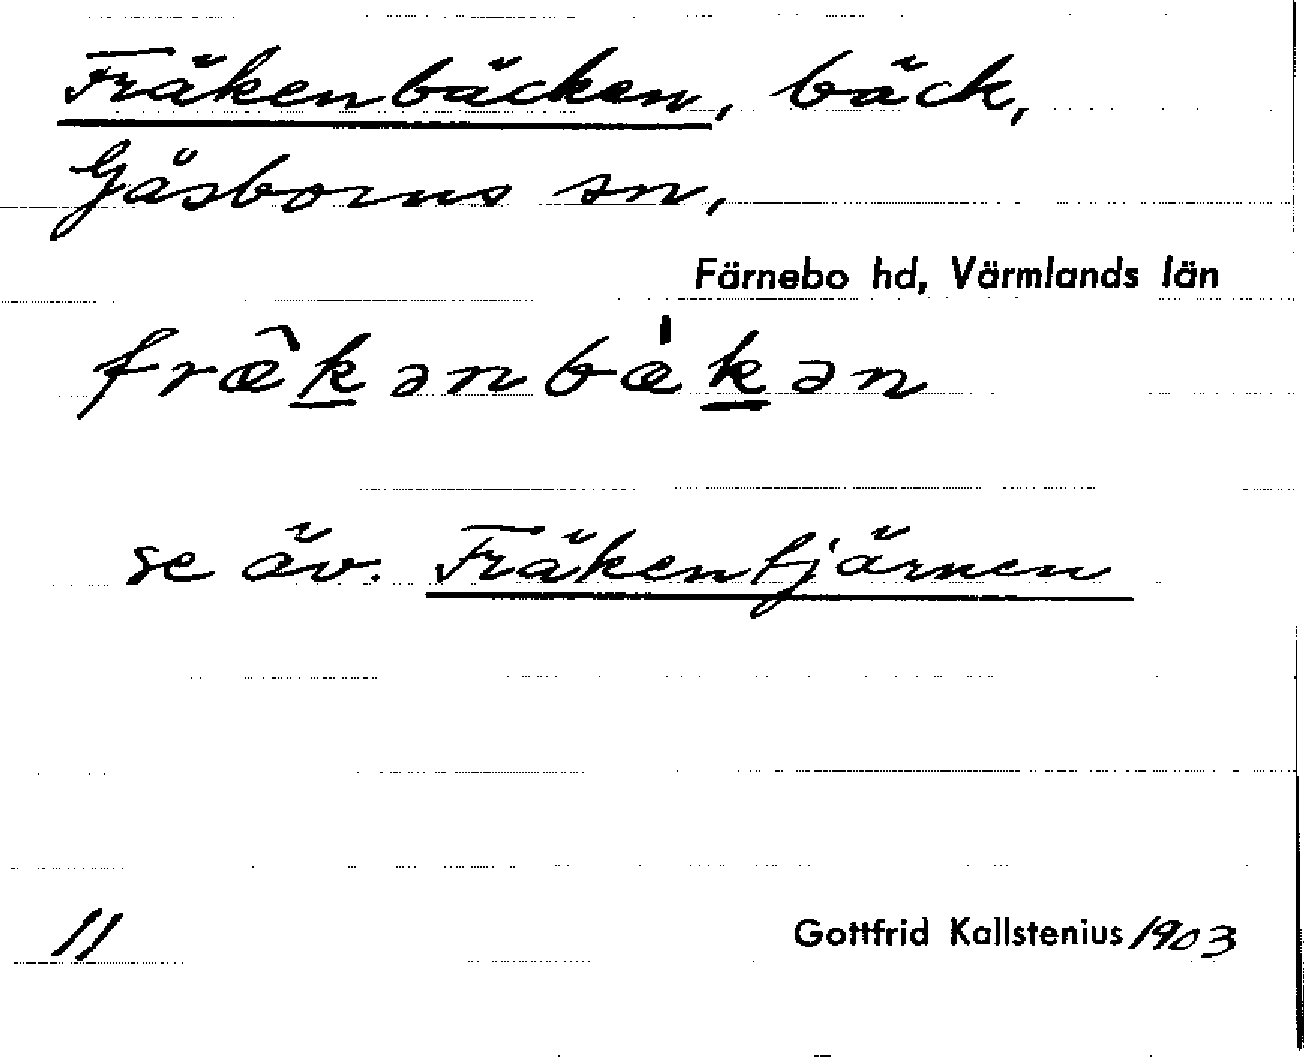 Fräkenbäcken, bäck,
Gåsborns sn,
Färnebo hd, Värmlands län
fræ̂k̲ənbæ̍k̲ən
se äv. Fräkentjärnen
11
Gottfrid Kallstenius 1903